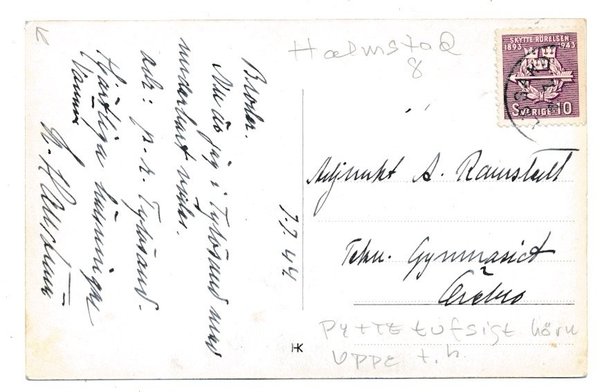 Halmstad
8
SKYTTERÖRELSEN
1893 1943
SVERIGE 10
Broder.
Nu är jag i Tylösand med
underbart väder.
adr: p. r. Tylösand.
Hjärtliga hälsningar
7.7.44
Adjunkt A. Ramstedt
Tekn. Gymnasiet
Örebro
PYTTE tufsigt hörn
uppe t.h.
HK